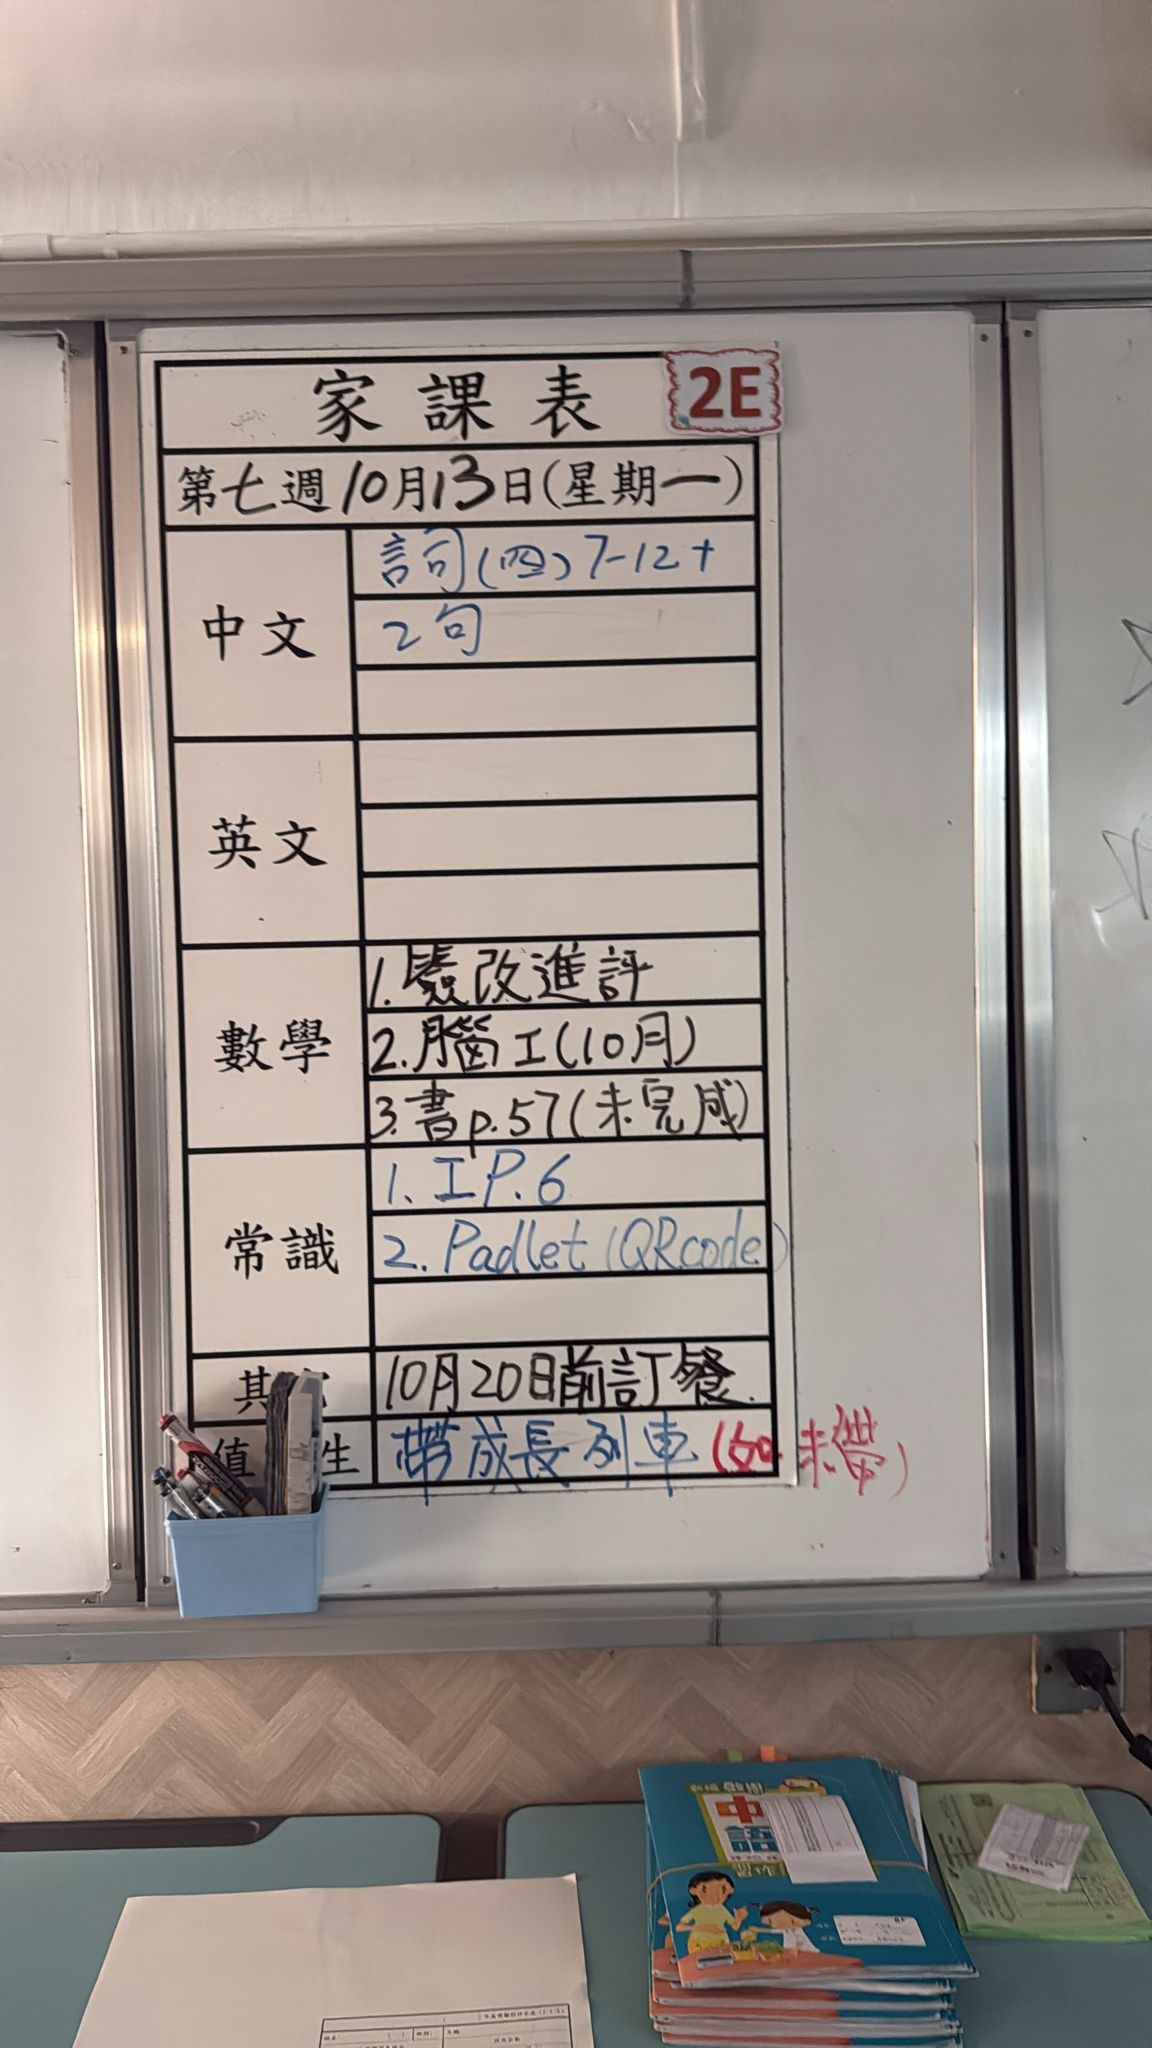 家課表
2E
第七週10月13日(星期一)
中文
詞(四)7-12+
2句
英文
數學
1.簽改進評
2.腦工(10月)
3.書p.57(未完成)
常識
1.工P.6
2.Padlet(QRcode)
其
10月20日前訂餐.
值 生
帶成長列車(如未帶)
中
語